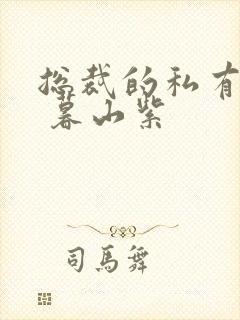 总裁的私有
暮山紫
司马舞